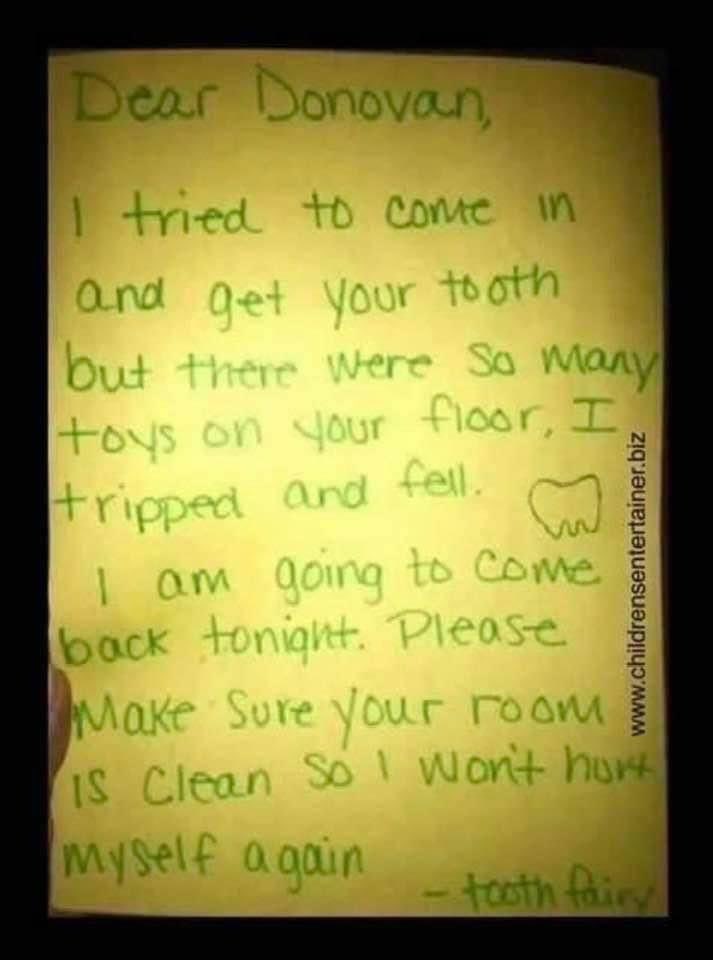 Dear Donovan,
I tried to come in
and get your tooth
but there were so many
toys on your floor, I
tripped and fell.
I am going to come
back tonight. Please
Make sure your room
is clean so I won't hurt
myself again
- tooth fairy
www.childrensentertainer.biz